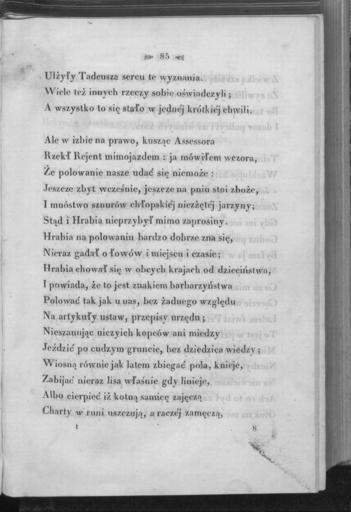 85
Ulżyły Tadeusza sercu te wyznania.
Wiele też innych rzeczy sobie oświadczyli;
A wszystko to się stało w jednéj krótkiéj chwili.
Ale w izbie na prawo, kusząc Assessora
Rzekł Rejent mimojazdem: ja mówiłem wczora,
Że polowanie nasze udać się niemoże:
Jeszcze zbyt wcześnie, jeszcze na pniu stoi zboże,
I mnóstwo sznurów chłopskiéj niezżętéj jarzyny;
Stąd i Hrabia nieprzybył mimo zaprosiny.
Hrabia na polowaniu bardzo dobrze zna się,
Nieraz gadał o łowów i miejscu i czasie;
Hrabia chował się w obcych krajach od dzieciństwa,
I powiada, że to jest znakiem barbarzyństwa
Polować tak jak u nas, bez żadnego względu
Na artykuły ustaw, przepisy urzędu;
Nieszanując niczyich kopców ani miedzy
Jeździć po cudzym gruncie, bez dziedzica wiedzy;
Wiosną równie jak latem zbiegać pola, knieje,
Zabijać nieraz lisa właśnie gdy linieje,
Albo cierpieć iż kotną samicę zajęczą
Charty w runi uszczują, a raczéj zamęczą,
I 8